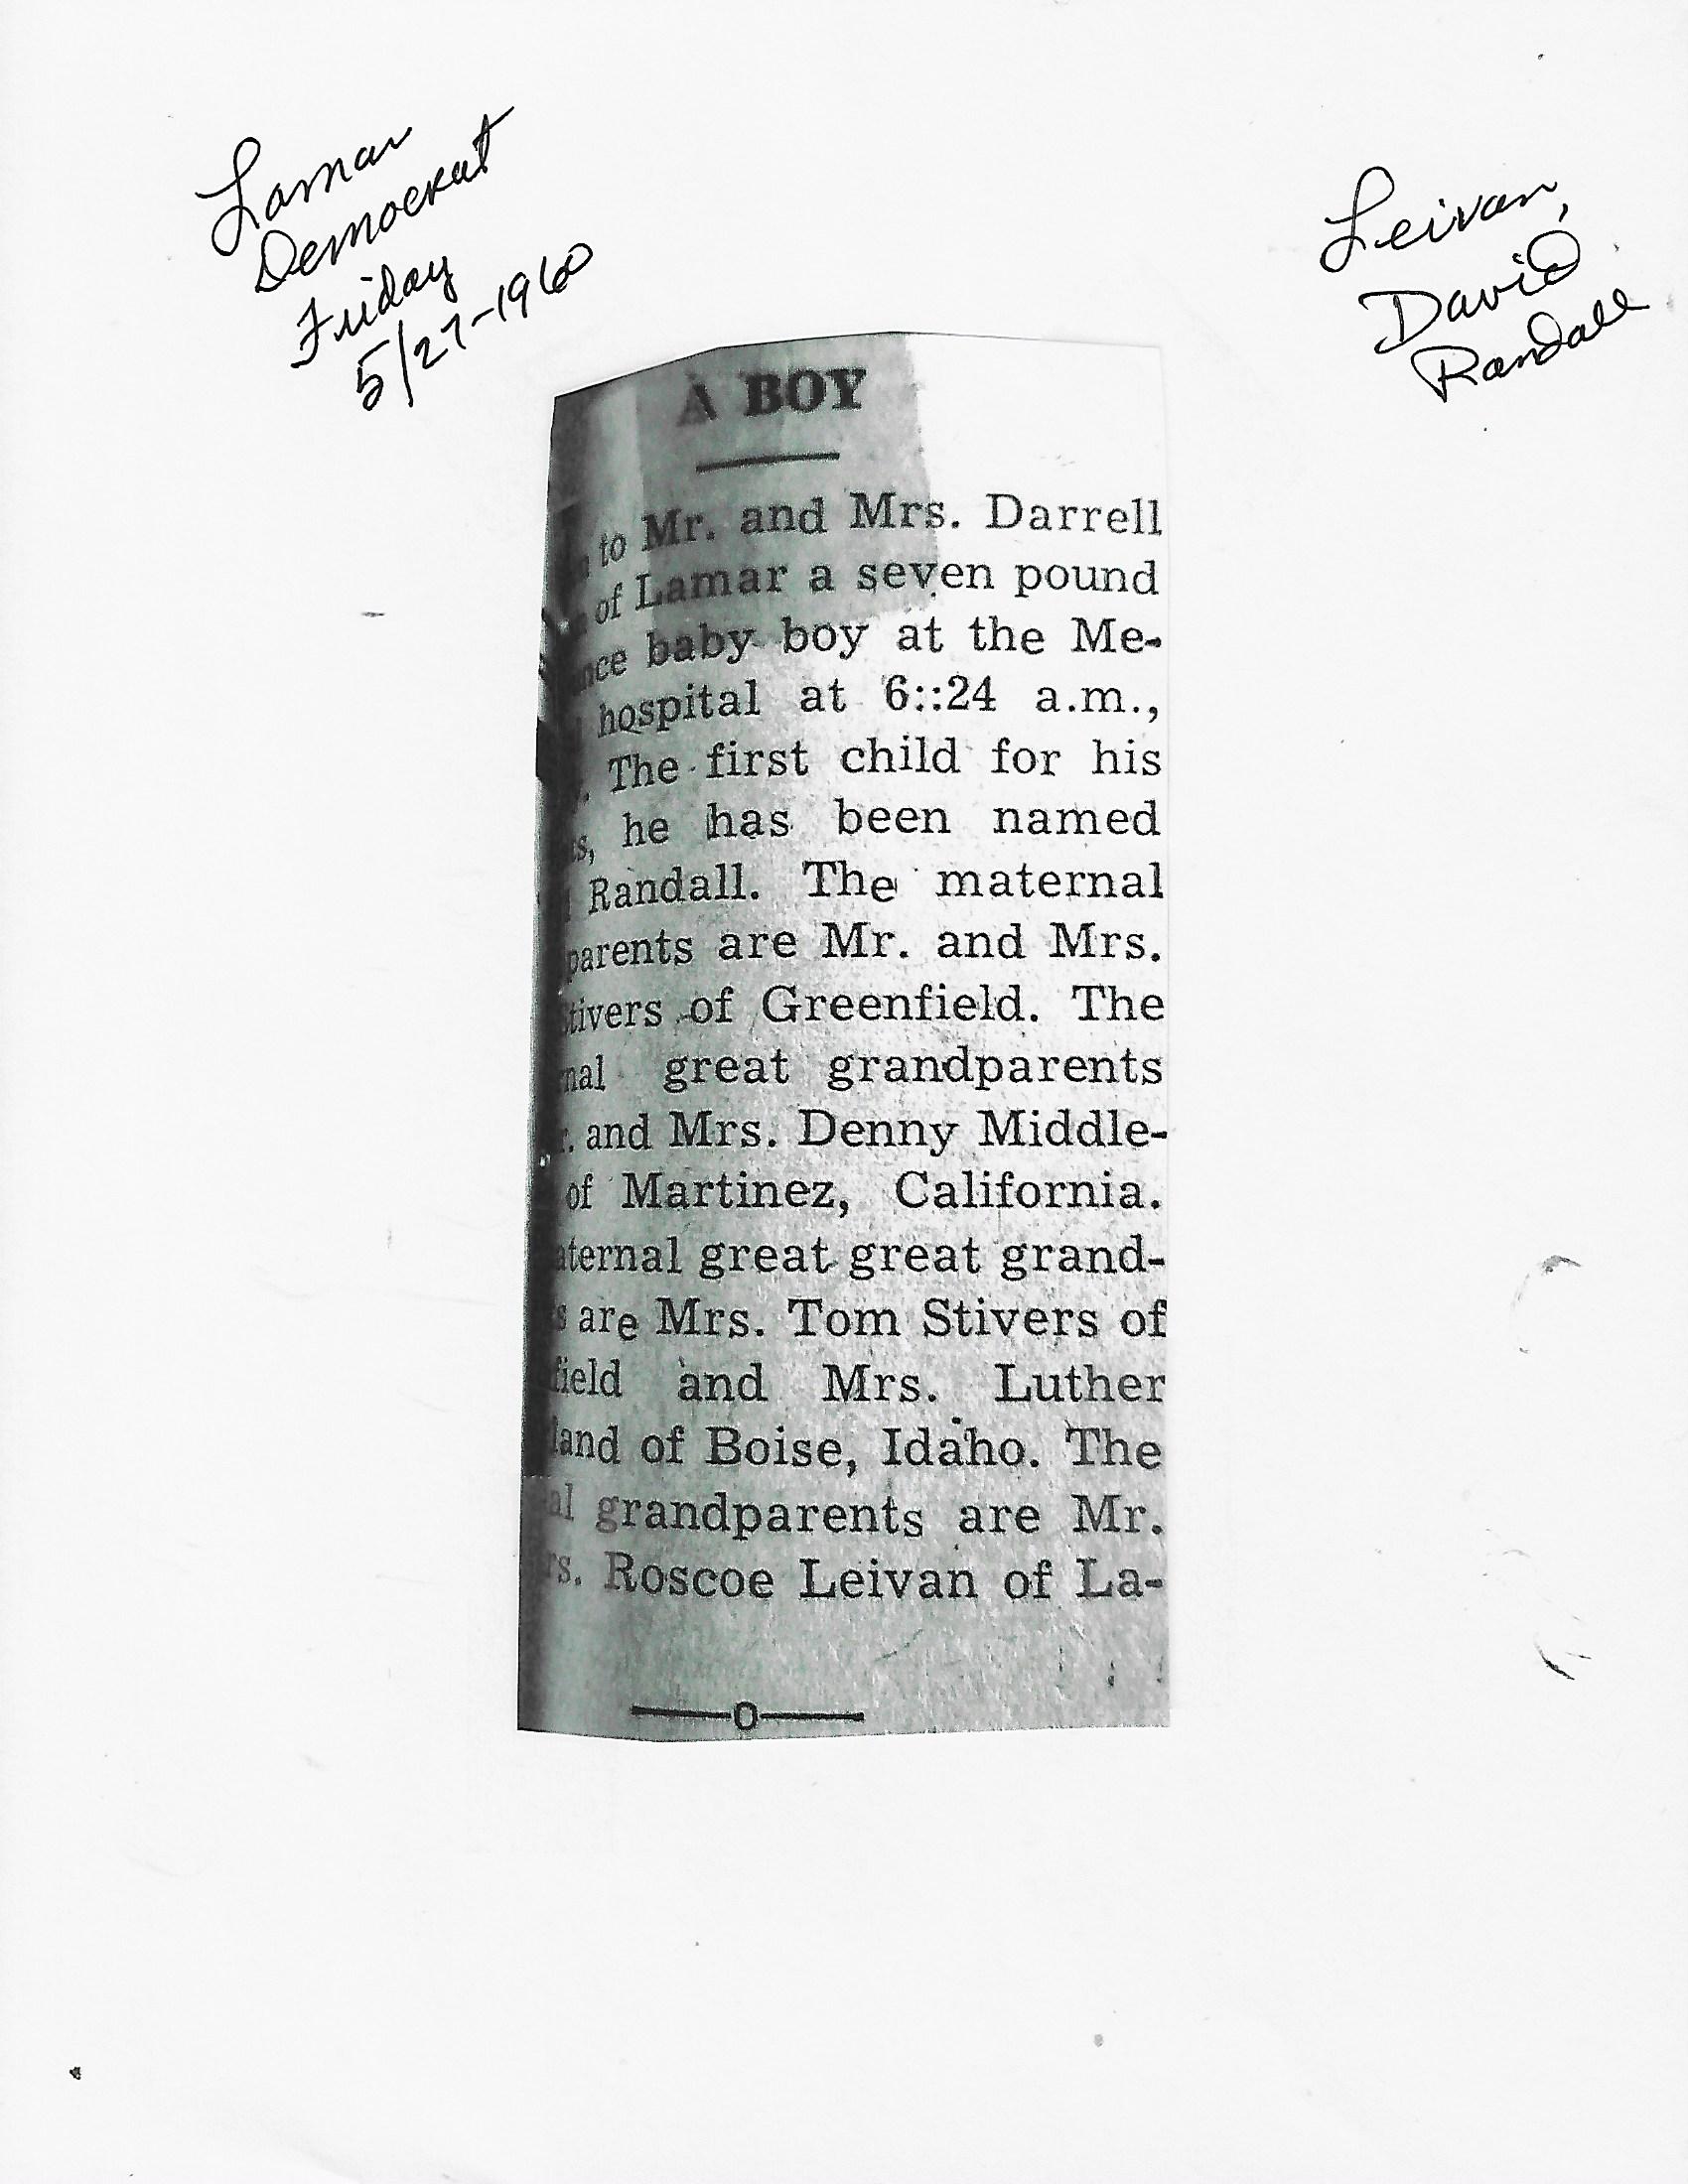 Lamar
Democrat
Friday
5/27-1960
Leivan,
David
Randall
A BOY
to Mr. and Mrs. Darrell
of Lamar a seven pound
nce baby boy at the Me-
hospital at 6::24 a.m.,
. The first child for his
s, he has been named
Randall. The maternal
parents are Mr. and Mrs.
tivers of Greenfield. The
nal great grandparents
. and Mrs. Denny Middle-
of Martinez, California.
aternal great great grand-
s are Mrs. Tom Stivers of
field and Mrs. Luther
land of Boise, Idaho. The
al grandparents are Mr.
rs. Roscoe Leivan of La-